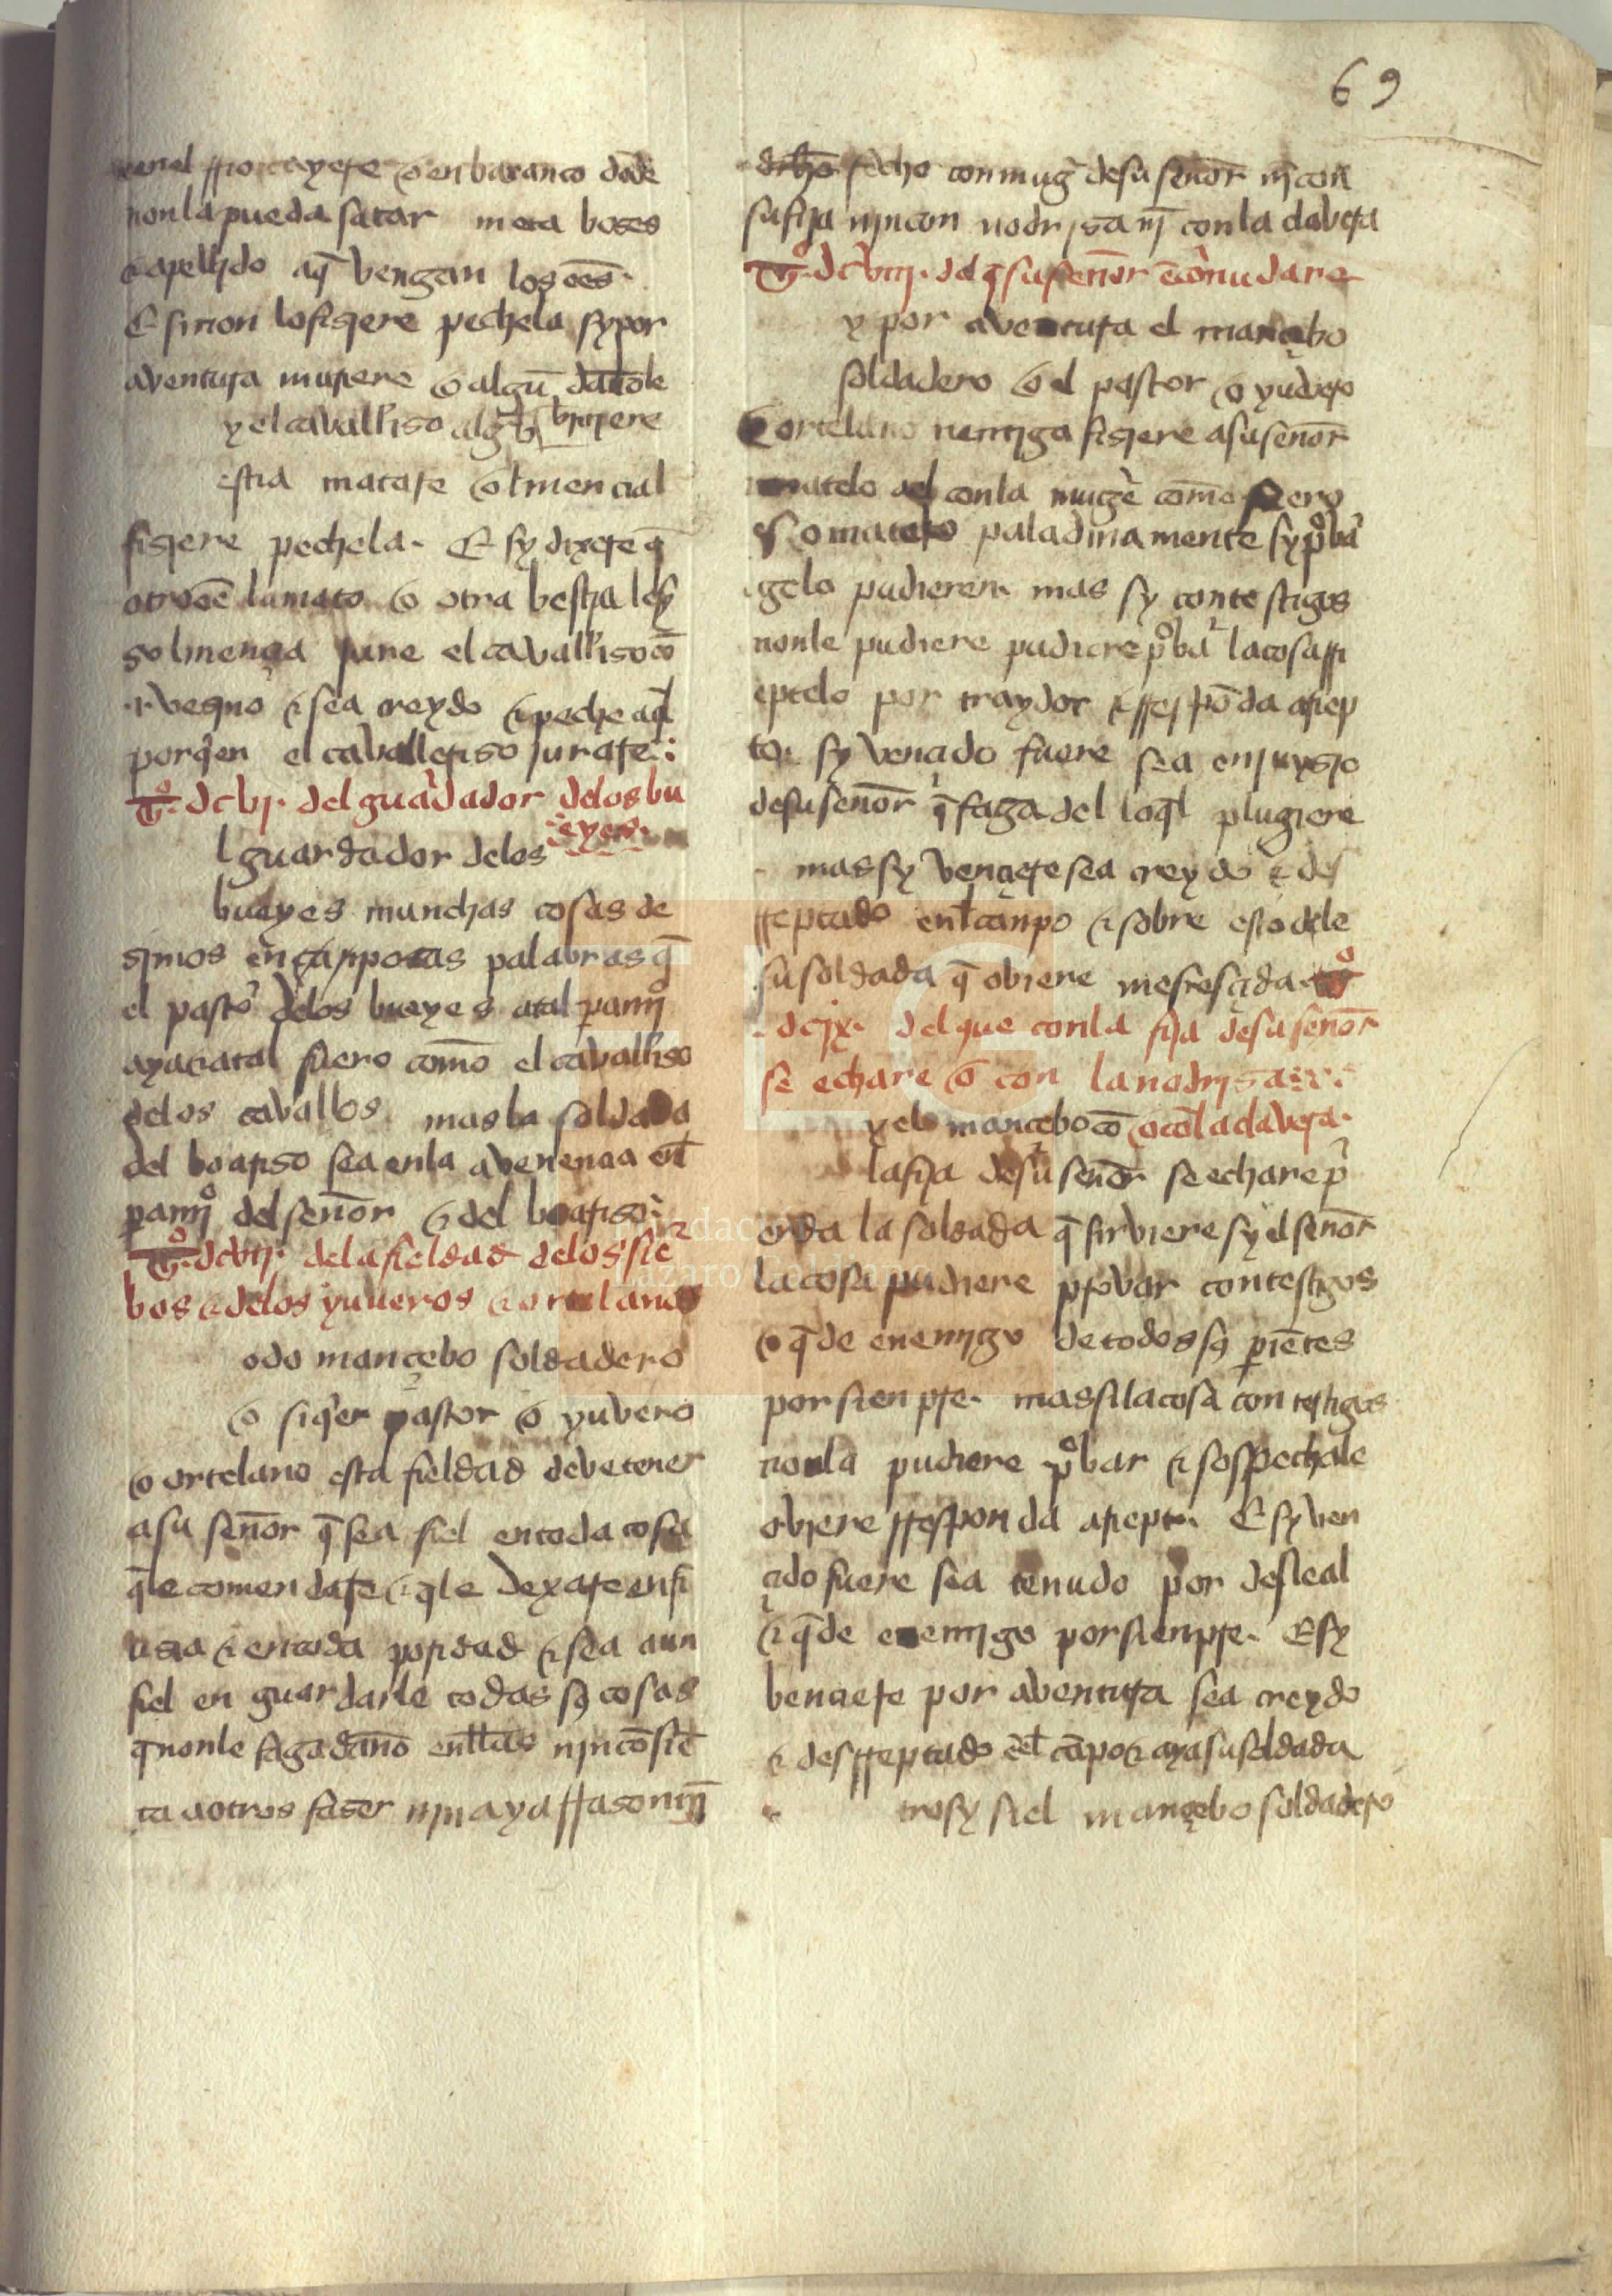 69
en el rrio cayere o en baranco dõde
non la pueda sacar meta boses
& apellido aq̃ vengan los oẽs.
E si non lo fisiere pechela sy por
aventura muriere o algũ daño le
y el cavallriso alg̃
biniere
estia matare o lmencial
fisiere pechela. E sy dixere q̃
otro oẽ la mato o otra bestia le sy
so lmençia jure el cavallriso cõ
.i. vesyno & sea creydo & peche aq̃l
por q̃en el cavalleriso jurare
tº. dcvj. del guardador delos bu
eyes.
l guardador delos
bueyes munchas cosas de
simos en çan pocas palabras q̃
el pastor delos bueyes atal pamjº
aya & atal fuero comõ el cavallriso
delos cavallos mas la soldada
del boariso sea en la avenencia enl
pamjº del señor & del boariso
tº. dcvij. de la fieldad delos sier
bos & delos yuueros & ortelanos
odo mançebo soldadero
o siq̃er pastor o yuvero
o ortelano esta fieldad deve tener
a su señor q̃ sea fiel en toda cosa
q̃ le comendare & q̃ le dexare en fi
usia & en toda poridad & sea aun
fiel en guardarle todas sus cosas
q̃ non le faga daño en llas njn cõsiẽ
ta a otros faser njn aya rrason nj̃
dicho fecho con mug̃ de su señor nj̃ con
su fija njn con nodrisa nj̃ con la clavera
tº. dcviij. del q̃ su señor ẽcornudare
y por aventura el mancebo
soldadero o el pastor o yuvero
o ortelano nemiga fisiere a su señor
matelo ael con la muger comõ fuero
so matelo paladina mente sy pºbar
gelo pudieren mas sy con testigos
non le pudiere pudiere pºbar la cosa rri
eptelo por traydor & rresponda a riep
to. sy vencido fuere sea en juysio
de su señor q̃ faga del lo q̃l plugiere
mas sy venciere sea creydo & des
rreptado enl canpo & sobre esto dele
su soldada q̃ obiere meresçida. tº
.dcix. del que con la fija de su señor
se echare o con la nodrisa
y el mancebo cõ o cõ la clavera.
la fija de su señor se echare pi
erda la soldada q̃ sirviere sy el señor
la cosa pudiere provar con testigos
o q̃de enemigo de todos sus pariẽtes
por sienpre. mas si la cosa con testigos
non la pudiere pºbar & sospechale
obiere rresponda a riepto. E sy ven
çido fuere sea tenudo por desleal
& q̃de enemigo por sienpre. E sy
benciere por aventura sea creydo
& desrreptado ẽl cãpo & aya su soldada
trosy si el mançebo soldadero